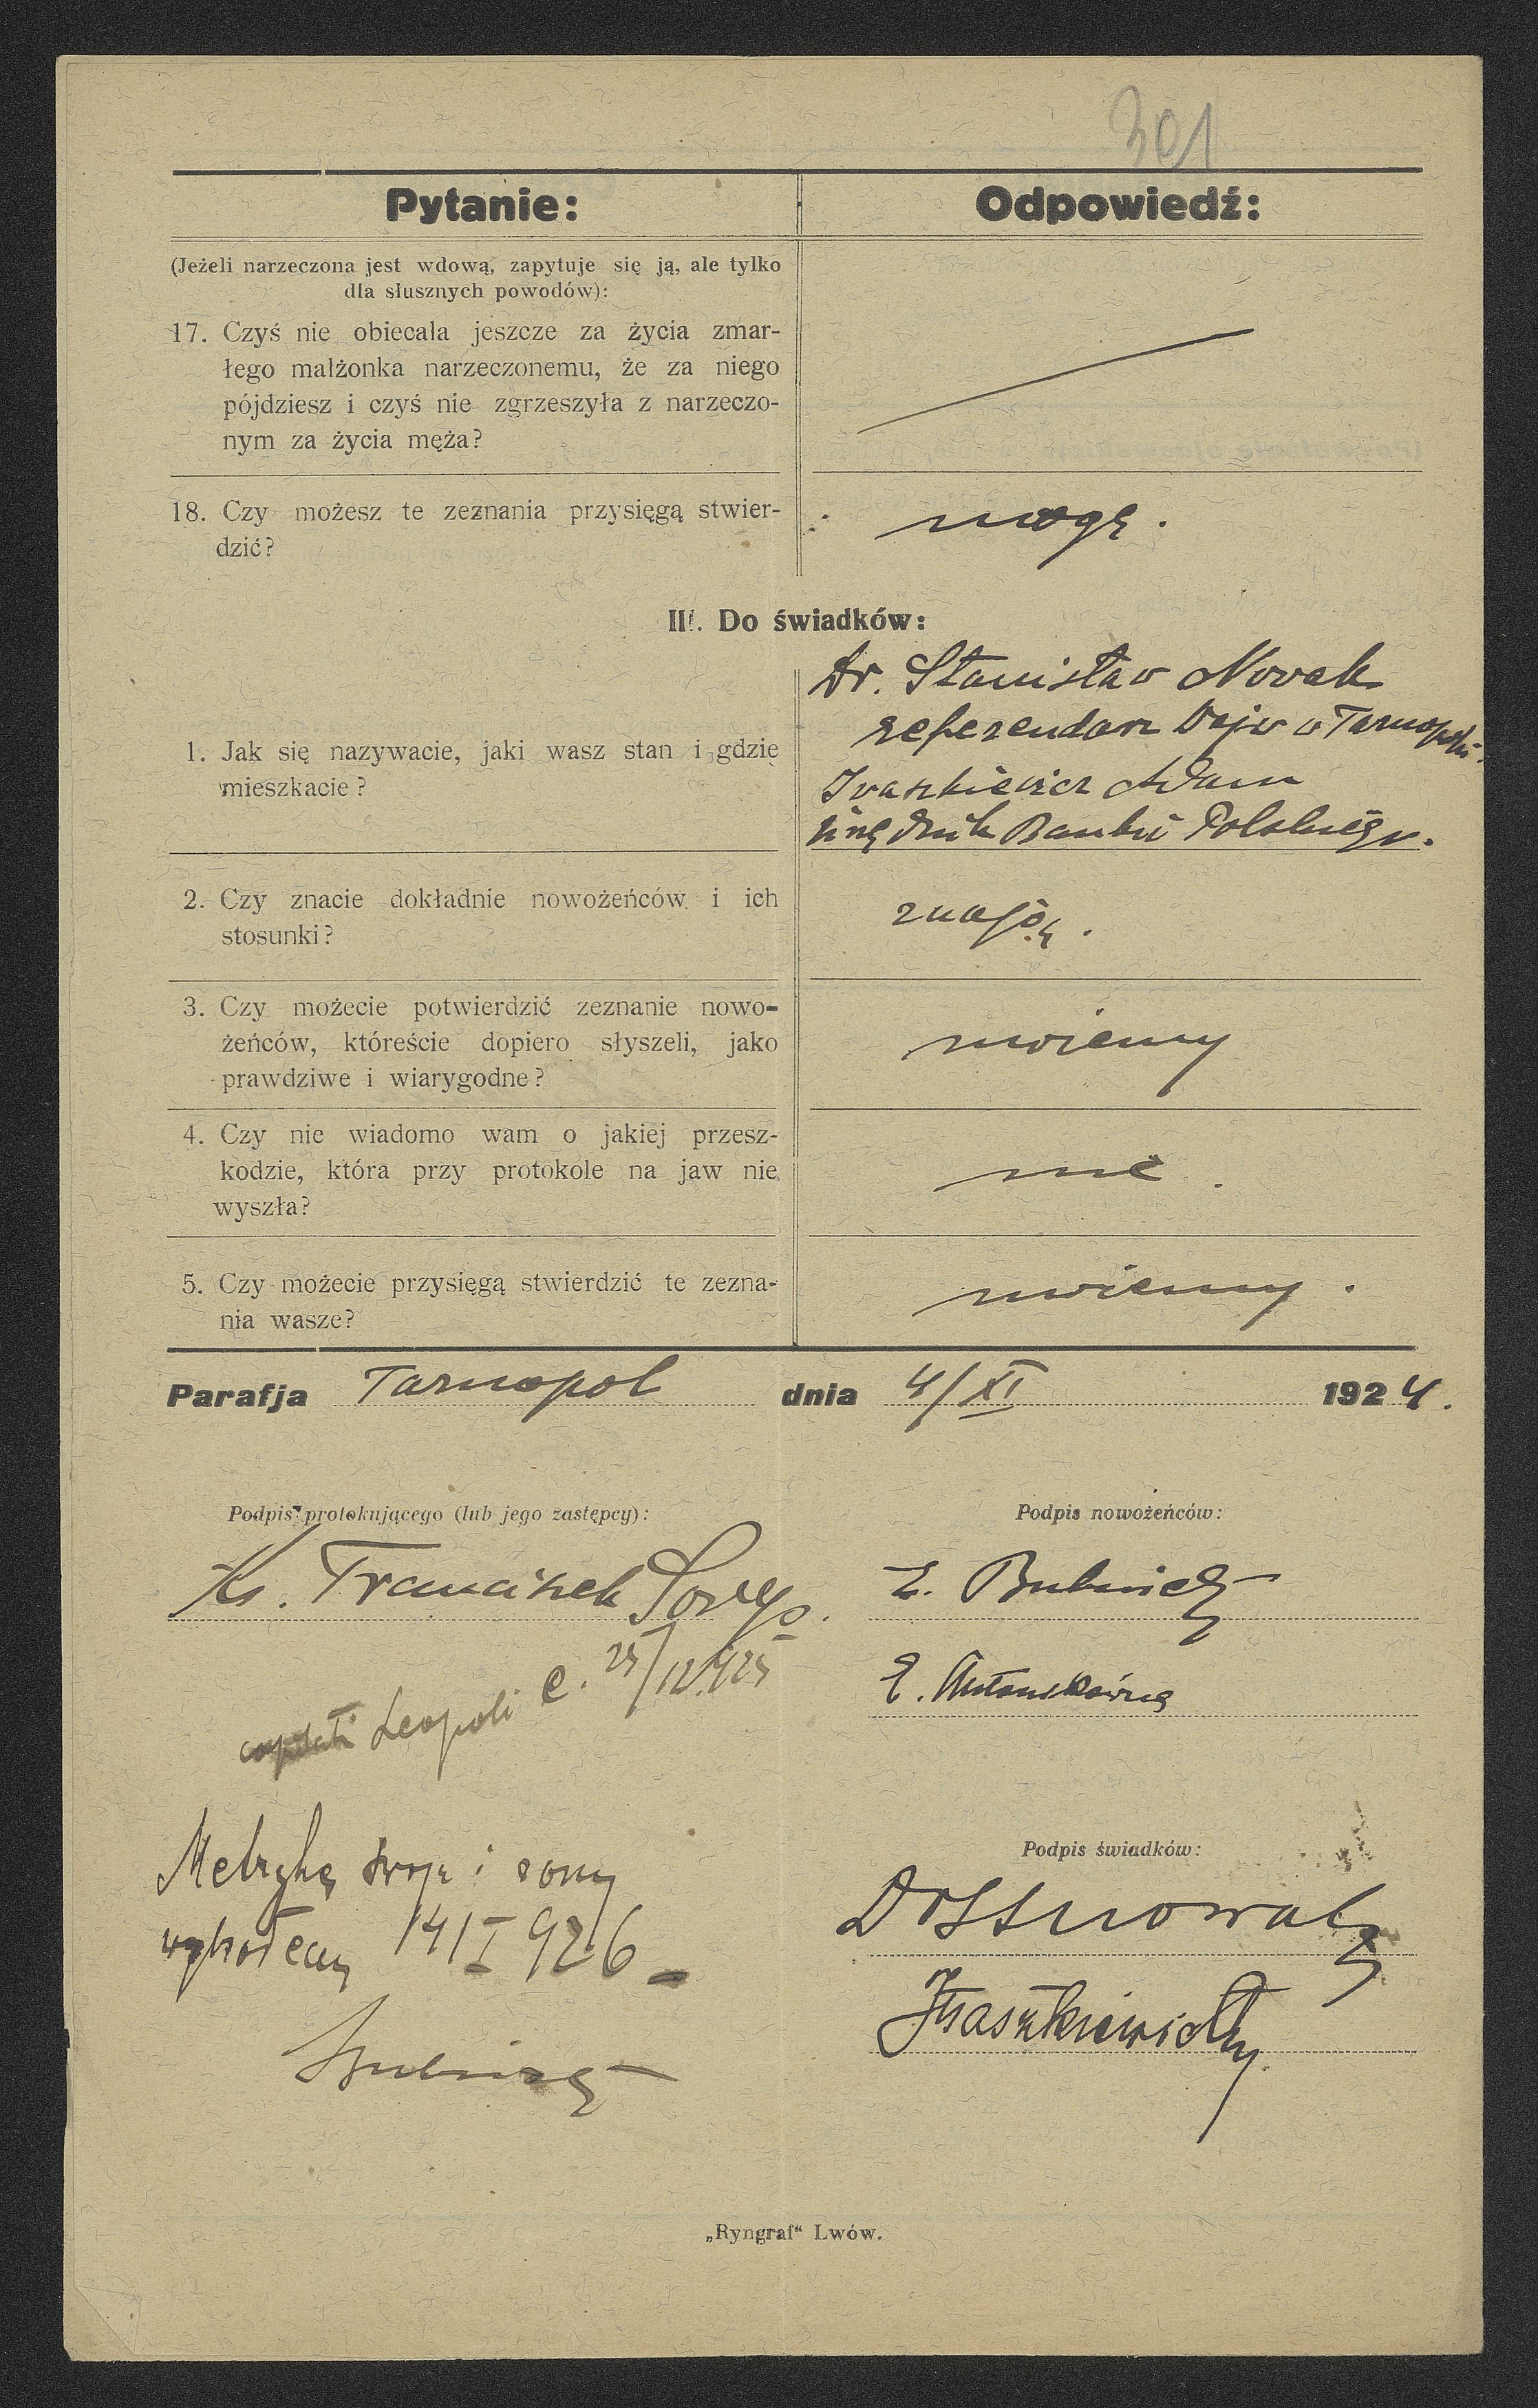 301
Pytanie:
Odpowiedź:
(Jeżeli narzeczona jest wdową, zapytuje się ją, ale tylko
dla słusznych powodów):
17. Czyś nie obiecała jeszcze za życia zmar-
łego małżonka narzeczonemu, że za niego
pójdziesz i czyś nie zgrzeszyła z narzeczo-
nym za życia męża?
18. Czy możesz te zeznania przysięgą stwier-
dzić?
mogę.
III. Do świadków:
1. Jak się nazywacie, jaki wasz stan i gdzie
mieszkacie?
Dr. Stanisław Nowak
referendarz Wojw w Tarnopolu.
Iwaszkiewicz Adam
urzędnik Banku Polskiego.
2. Czy znacie dokładnie nowożeńców i ich
stosunki?
znają.
3. Czy możecie potwierdzić zeznanie nowo-
żeńców, któreście dopiero słyszeli, jako
prawdziwe i wiarygodne?
możemy
4. Czy nie wiadomo wam o jakiej przesz-
kodzie, która przy protokole na jaw nie
wyszła?
nie.
5. Czy możecie przysięgą stwierdzić te zezna-
nia wasze?
możemy.
Parafja Tarnopol dnia 4/XI 1924.
Podpis protokującego (lub jego zastępcy):
Ks. Franciszek
Podpis nowożeńców:
E. Antonskówna
copulati Leopoli e. 25/12.925
Metrykę swoją i żony
wybrałem 14/I 926
Podpis świadków:
Dr StNowak
Iwaszkiewicz
„Ryngraf“ Lwów.